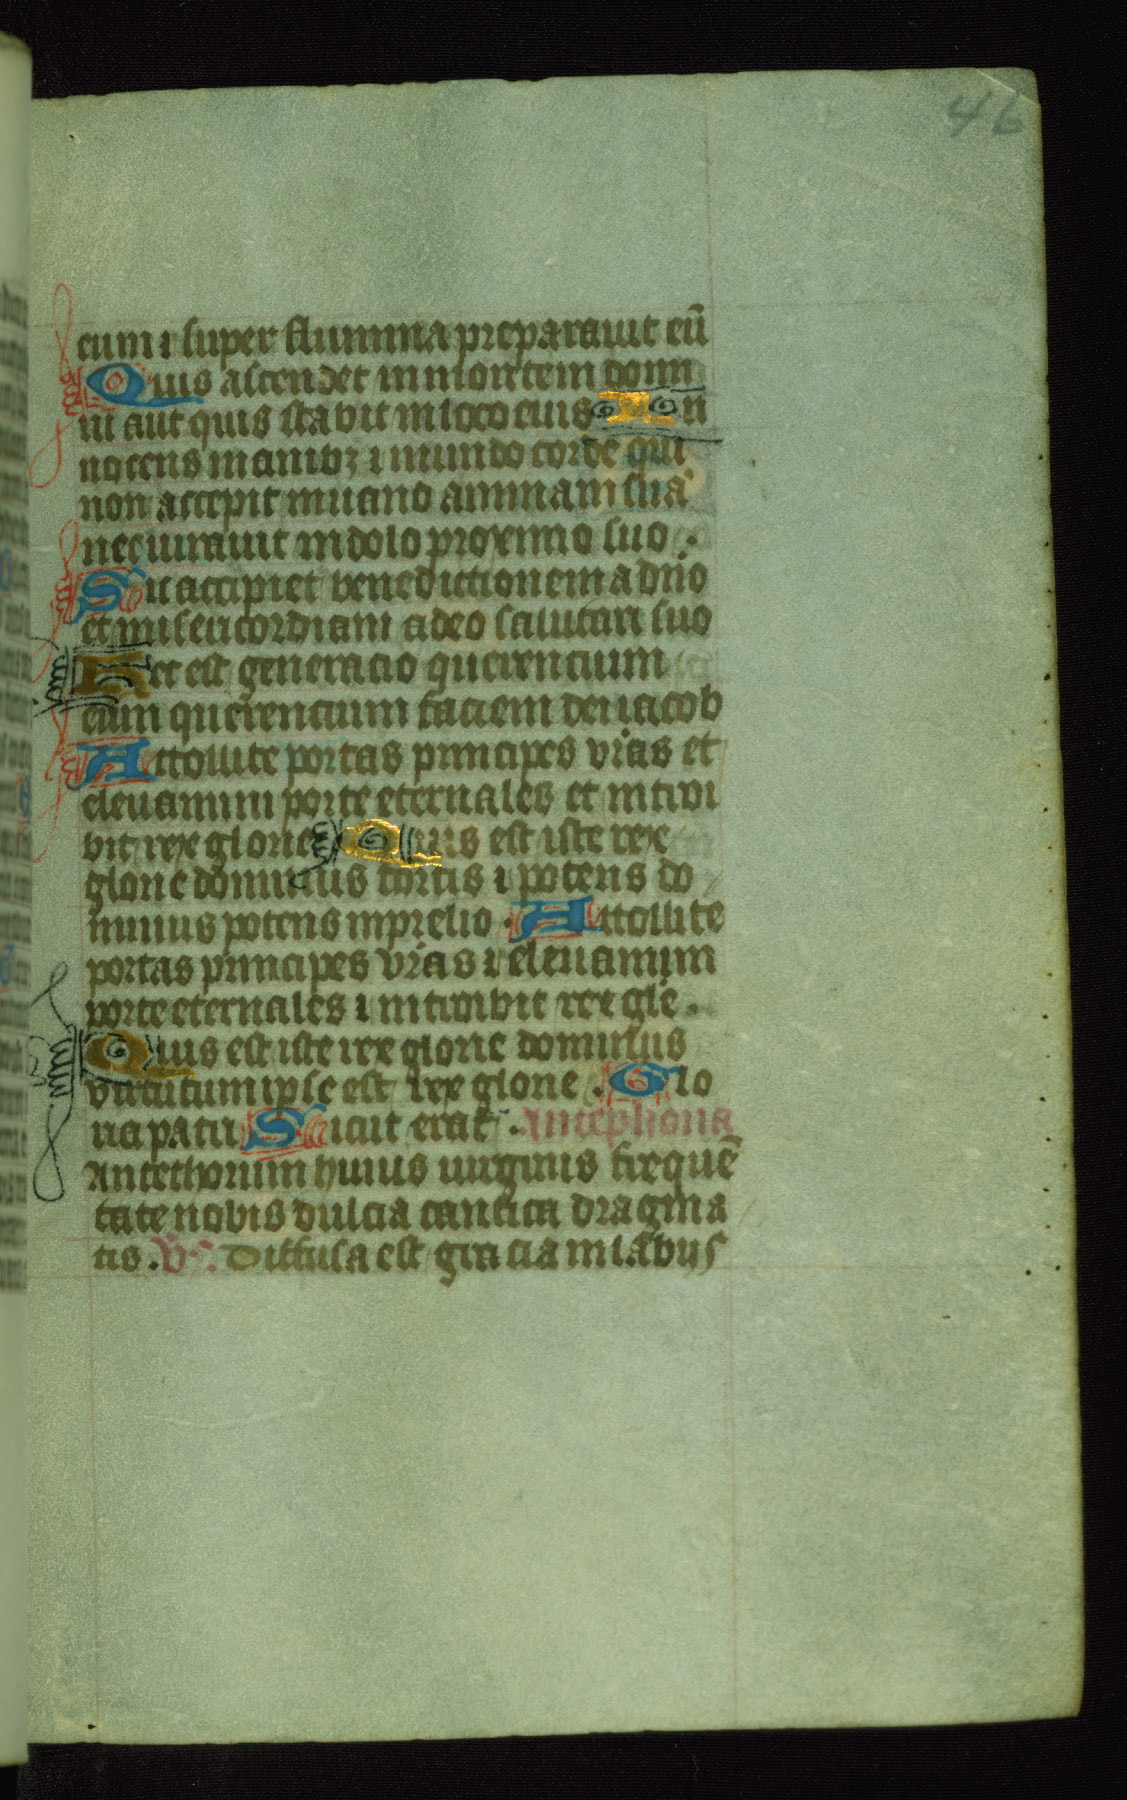 46
eum ⁊ super flumina preparauit eū
Quis ascendet in montem domi
ni aut quis stabit in loco eius In
nocens manibꝫ ⁊ mundo corde qui
non accepit in uano animam suā
nec iurauit in dolo proximo suo .
Sit accipiet benedictionem a dn̄o
et misericordiam a deo salutari suo
Hec est generacio querencium
eum querencium faciem dei iacob
Attollite portas principes vr̄as et
eleuamini porte eternales et introi
bit rex glorie Quis est iste rex
glorie dominus fortis ⁊ potens do
minus potens in prelio . Attollite
portas principes vr̄as ⁊ eleuamini
porte eternales ⁊ introibit rex gl̄e .
Quis est iste rex glorie dominus
virtutum ipse est rex glorie . Glo
ria patri Sicut erat . Antephona
Ante thorum huius uirginis frequē
tate nobis dulcia cantica dragma
tis . V̄. Diffusa est gracia in labijs